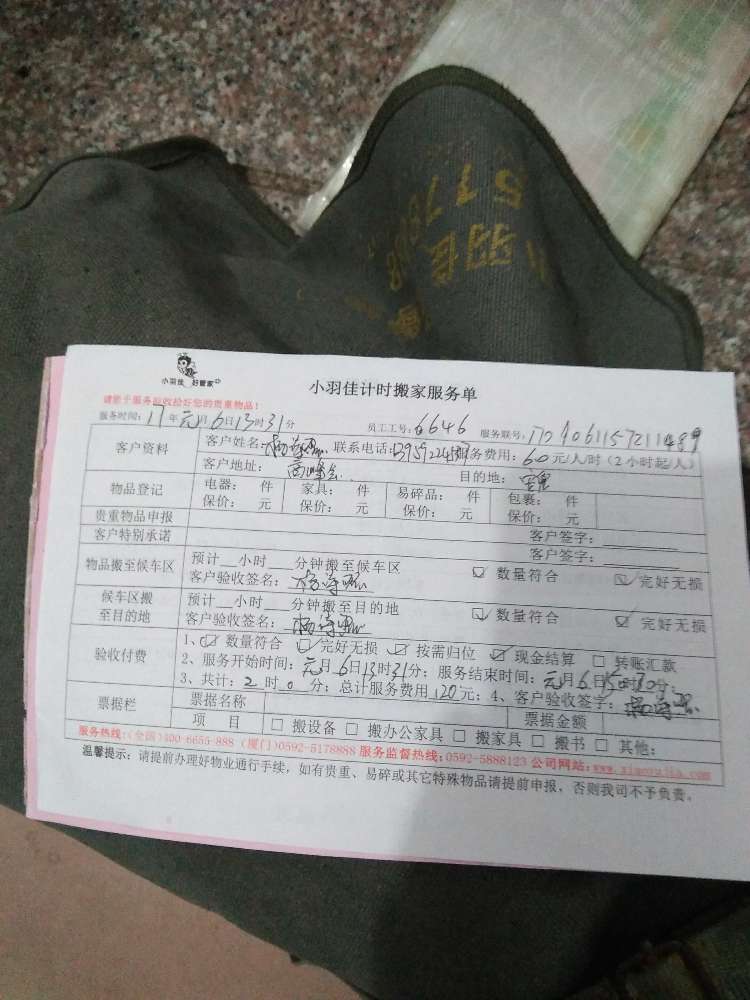 小羽佳 好管家
小羽佳计时搬家服务单
请您于服务前收拾好您的贵重物品!
服务时间: 17年元月6日13时31分 员工工号: 6646 服务联号:
客户资料 客户姓名: 联系电话: 服务费用: 60元/人/时(2小时起/人)
客户地址: 目的地:
物品登记 电器: 件 家具: 件 易碎品: 件 包裹: 件
保价: 元 保价: 元 保价: 元 保价: 元
贵重物品申报
客户特别承诺 客户签字:
客户签字:
物品搬至候车区 预计__小时__分钟搬至候车区
客户验收签名: ☑ 数量符合 ☑ 完好无损
候车区搬至目的地 预计__小时__分钟搬至目的地
客户验收签名: ☑ 数量符合 ☑ 完好无损
验收付费 1、☑ 数量符合 ☑ 完好无损 ☑ 按需归位 ☑ 现金结算 □ 转账汇款
2、服务开始时间: 元月6日13时31分; 服务结束时间: 元月6日
3、共计: 2时0分; 总计服务费用120元; 4、客户验收签字:
票据栏 票据名称 票据金额
项 目 □ 搬设备 □ 搬办公家具 □ 搬家具 □ 搬书 □ 其他:
服务热线:(全国)400-6655-888 (厦门)0592-5178888 服务监督热线:0592-5888123 公司网站:www.xiaoyujia.com
温馨提示: 请提前办理好物业通行手续, 如有贵重、易碎或其它特殊物品请提前申报, 否则我司不予负责。
小羽佳